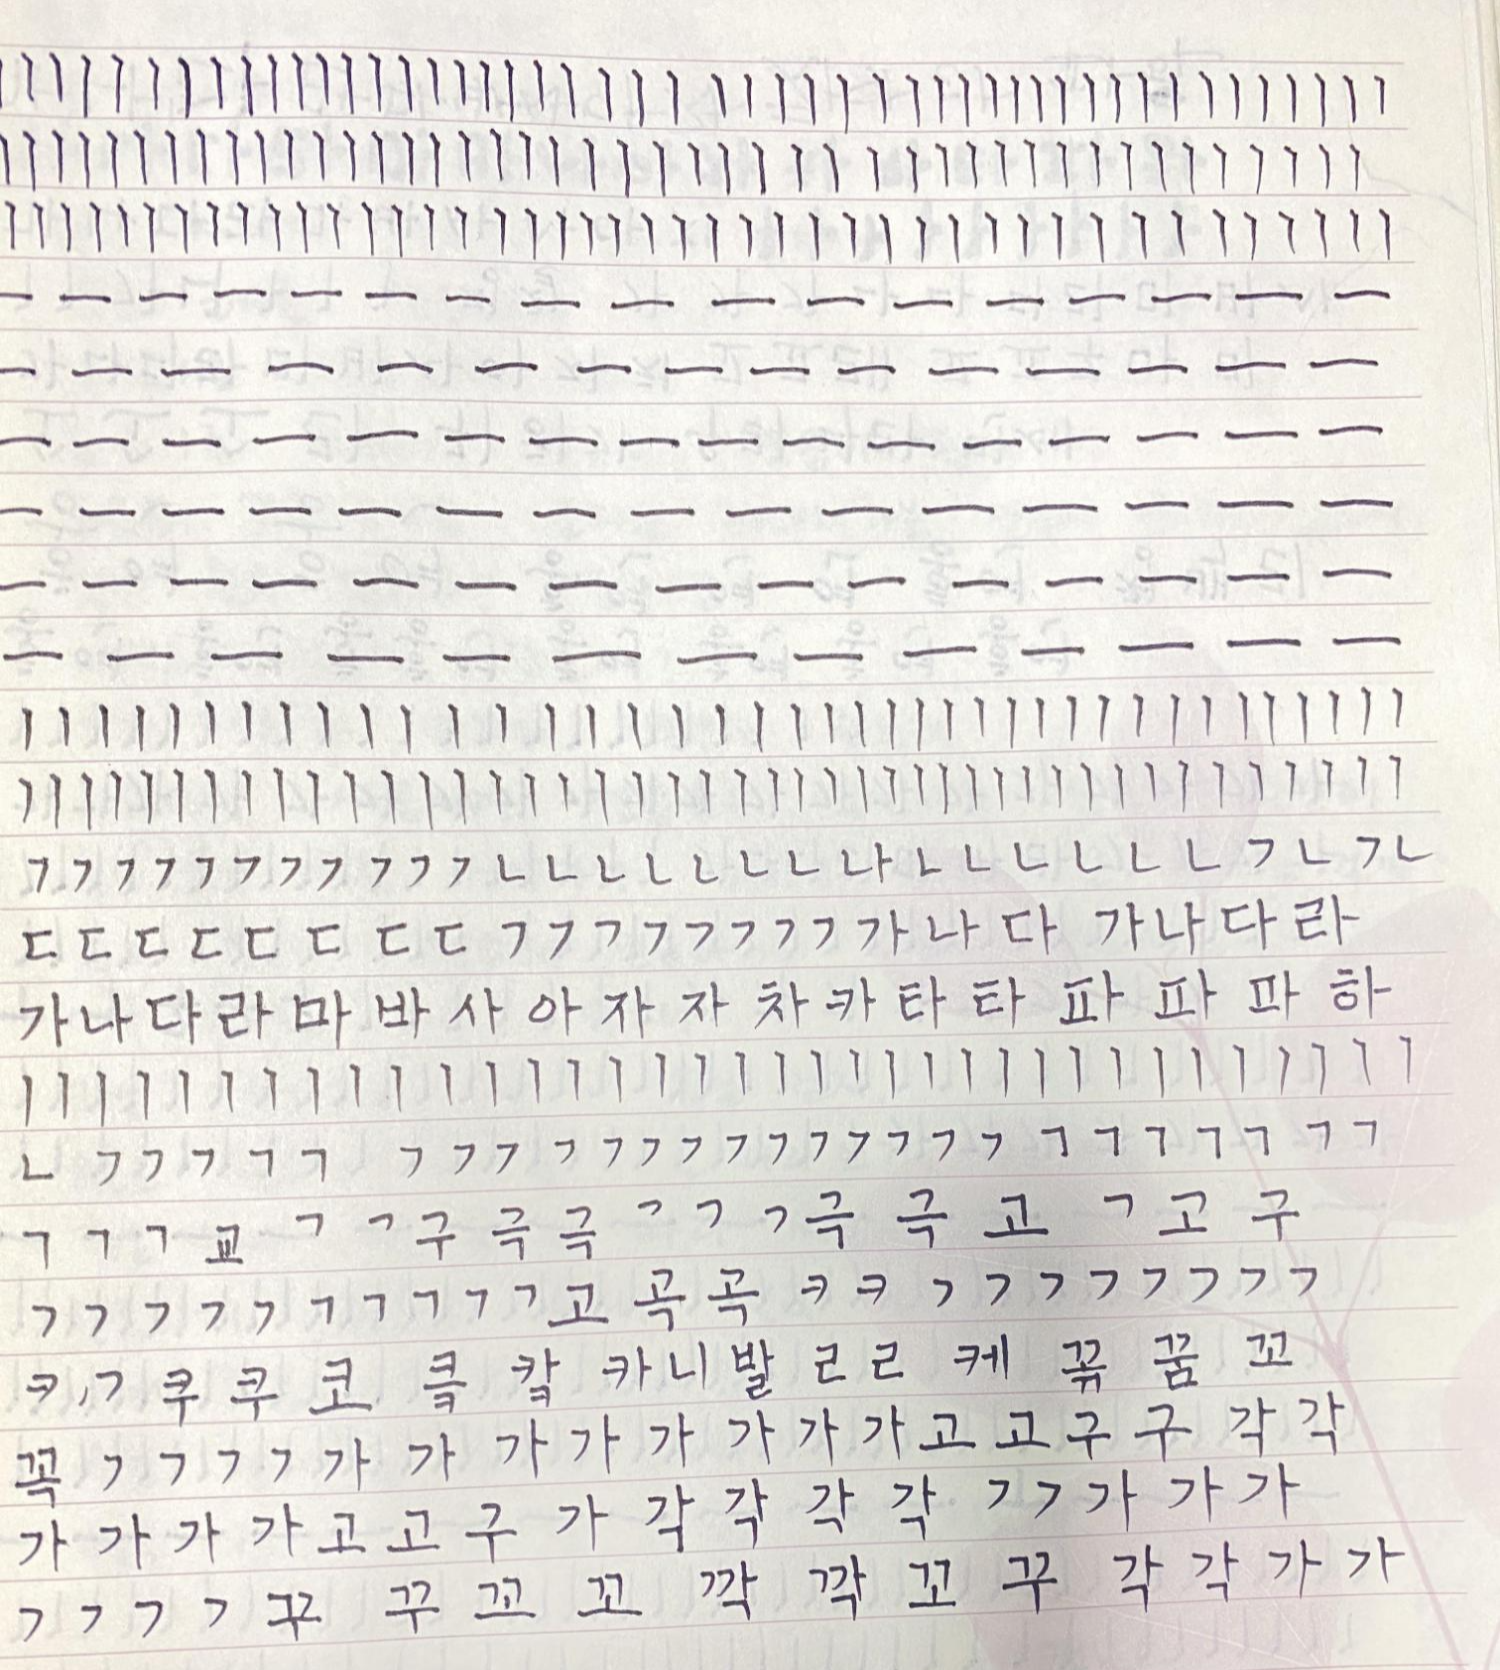 ㄱㄱㄱㄱㄱㄱㄱㄱㄱㄱ ㄴㄴㄴㄴㄴㄴㄴ나ㄴㄴㄴㄴㄴㄴㄱㄴㄱㄴ
ㄷㄷㄷㄷㄷㄷㄷㄷㄱㄱㄱㄱㄱㄱㄱㄱ가나다 가나다라
가나다라마바사아자자차카타타파파파하
ㄴㄱㄱㄱㄱㄱ ㄱㄱㄱㄱㄱㄱㄱㄱㄱㄱㄱㄱㄱㄱㄱㄱㄱㄱㄱㄱ
ㄱㄱㄱ교ㄱㄱ구극극ㄱㄱㄱ극극고ㄱ고구
ㄱㄱㄱㄱㄱㄱㄱㄱㄱㄱ고곡곡ㅋㅋㄱㄱㄱㄱㄱㄱㄱㄱ
ㅋ,ㄱ쿠쿠코 카니발ㄹㄹ 케 꿈 꼬
꼭ㄱㄱㄱㄱ가가가가가가가가고고구구각각
가가가가고고구가각각각각ㄱㄱ가가가
ㄱㄱㄱㄱ꾸꾸꼬꼬깍깍꼬꾸각각가가